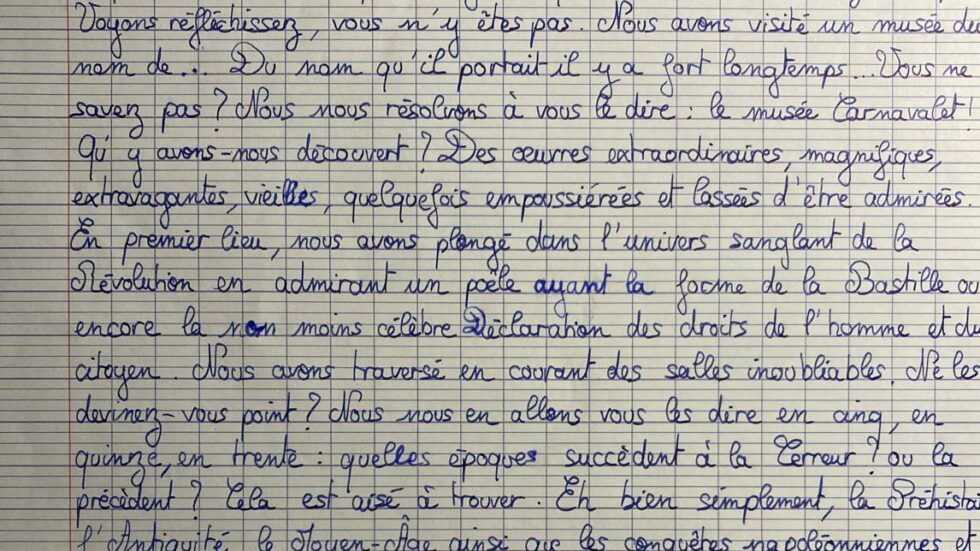 Voyons réfléchissez, vous n'y êtes pas. Nous avons visité un musée du
nom de... Du nom qu'il portait il y a fort longtemps... Vous ne
savez pas ? Nous nous résolvons à vous le dire : le musée Carnavalet
Qu'y avons-nous découvert ? Des œuvres extraordinaires, magnifiques,
extravagantes, vieilles, quelquefois empoussiérées et lassées d'être admirées.
En premier lieu, nous avons plongé dans l'univers sanglant de la
Révolution en admirant un poêle ayant la forme de la Bastille ou
encore la non moins célèbre Déclaration des droits de l'homme et du
citoyen. Nous avons traversé en courant des salles inoubliables. Ne les
devinez-vous point ? Nous nous en allons vous les dire en cinq, en
quinze, en trente : quelles époques succèdent à la Terreur ? ou la
précèdent ? Cela est aisé à trouver. Eh bien simplement, la Préhistoi
l'Antiquité, le Moyen-Âge ainsi que les conquêtes napoléoniennes et